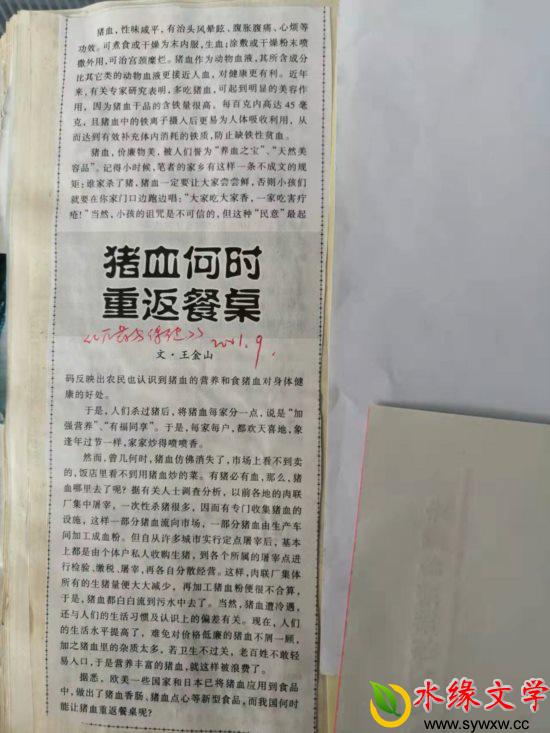 猪血，性味咸平，有治头风晕眩、腹胀腹痛、心烦等
功效。可煮食或干燥为末内服，生血；涂敷或干燥粉末喷
撒外用，可治宫颈糜烂。猪血作为动物血液，其所含成分
比其它类的动物血液更接近人血，对健康更有利。近年
来，有关专家研究表明，多吃猪血，可起到明显的美容作
用，因为猪血干品的含铁量很高，每百克内高达45毫
克，且猪血中的铁离子摄人后更易为人体吸收利用，从
而达到有效补充体内消耗的铁质，防止缺铁性贫血。
猪血，价廉物美，被人们誉为“养血之宝”、“天然美
容品”。记得小时候，笔者的家乡有这样一条不成文的规
矩：谁家杀了猪，猪血一定要让大家尝尝鲜，否则小孩们
就要在你家门口边跑边唱：“大家吃大家香，一家吃害疔
疮！”当然，小孩的诅咒是不可信的，但这种“民意”最起
猪血何时
重返餐桌
2001.9.
文·王金山
码反映出农民也认识到猪血的营养和食猪血对身体健
康的好处。
于是，人们杀过猪后，将猪血每家分一点，说是“加
强营养”、“有福同享”。于是，每家每户，都欢天喜地，象
逢年过节一样，家家炒得喷喷香。
然而，曾几何时，猪血仿佛消失了，市场上看不到卖
的，饭店里看不到用猪血炒的菜。有猪必有血，那么，猪
血哪里去了呢？据有关人士调查分析，以前各地的肉联
厂集中屠宰，一次性杀猪很多，因而有专门收集猪血的
设施，这样一部分猪血流向市场，一部分猪血由生产车
间加工成血粉。但自从许多城市实行定点屠宰后，基本
上都是由个体户私人收购生猪，到各个所属的屠宰点进
行检验、缴税、屠宰，再各自分散经营。这样，肉联厂集体
所有的生猪量便大大减少，再加工猪血粉便很不合算，
于是，猪血都白白流到污水中去了。当然，猪血遭冷遇，
还与人们的生活习惯及认识上的偏差有关。现在，人们
的生活水平提高了，难免对价格低廉的猪血不屑一顾，
加之猪血里的杂质太多，若卫生不过关，老百姓不敢轻
易人口，于是营养丰富的猪血，就这样被浪费了。
据悉，欧美一些国家和日本已将猪血应用到食品
中，做出了猪血香肠、猪血点心等新型食品，而我国何时
能让猪血重返餐桌呢？
水缘文学
www.sywxw.cc